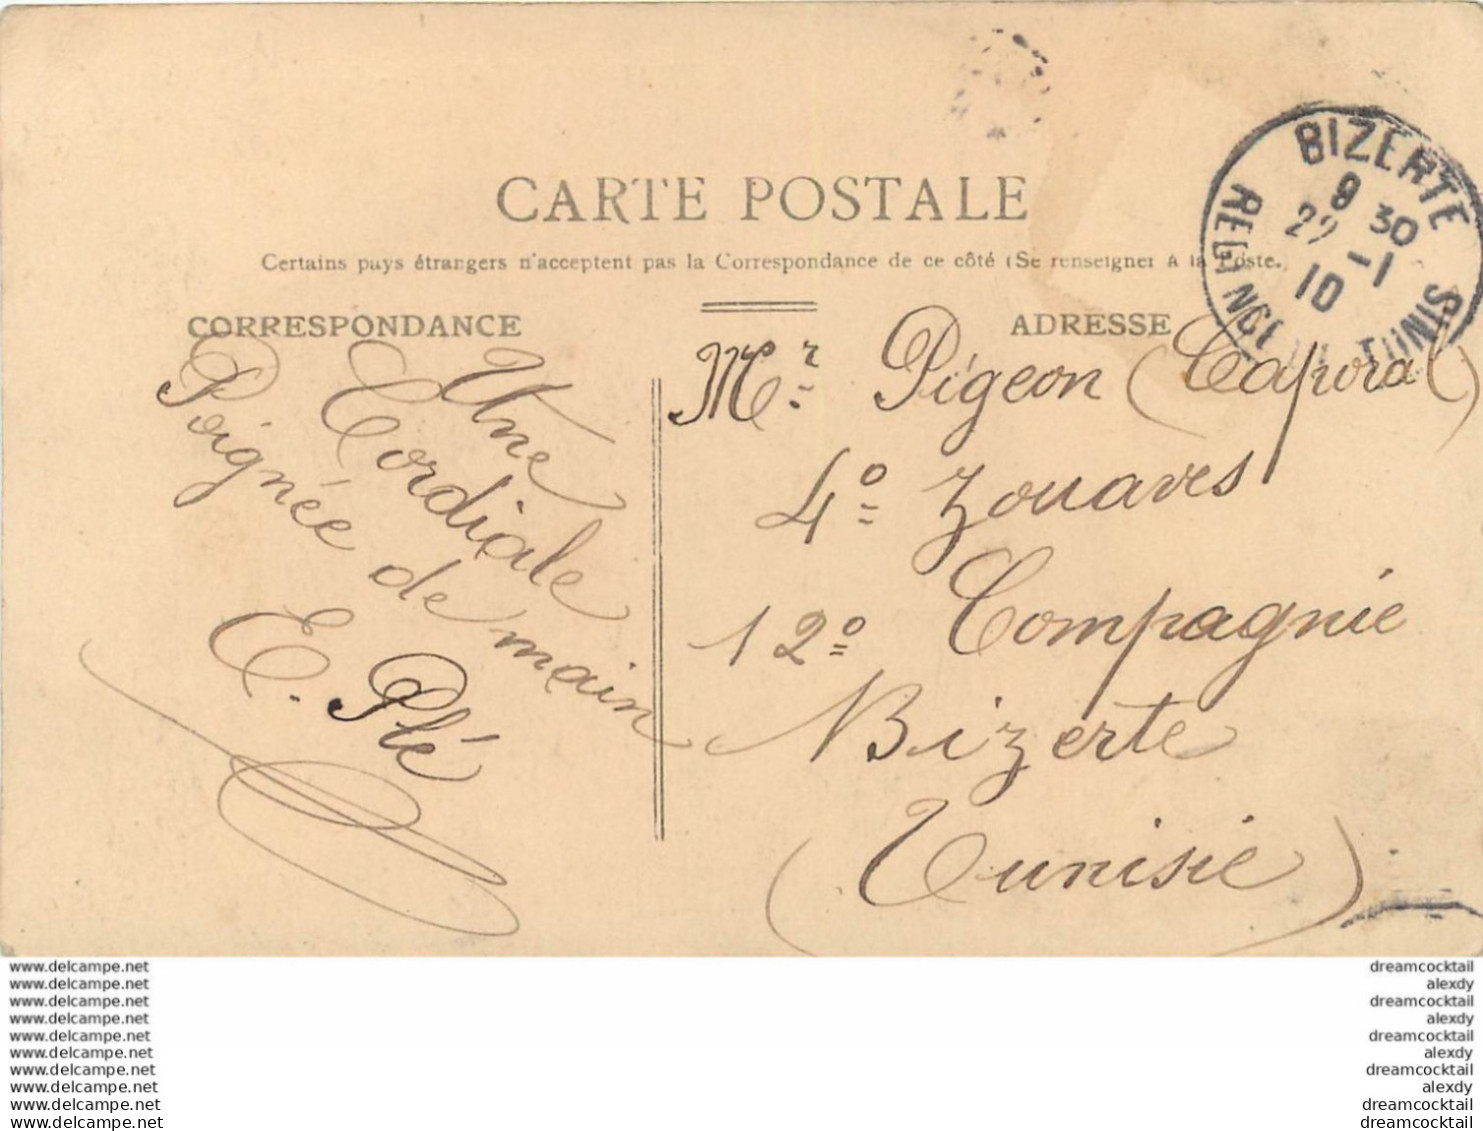 CARTE POSTALE
Certains pays étrangers n'acceptent pas la Correspondance de ce côté (Se renseigner à la Poste.
CORRESPONDANCE
ADRESSE
BIZERTE
8 30
22 -1
10
REGENCE DE TUNIS
Une
Cordiale
Poignée de main
E. Plé
Mr Pigeon (Caporal)
4º Zouaves
12º Compagnie
Bizerte
(Tunisie)
www.delcampe.net
www.delcampe.net
www.delcampe.net
www.delcampe.net
www.delcampe.net
www.delcampe.net
www.delcampe.net
www.delcampe.net
www.delcampe.net
www.delcampe.net
dreamcocktail
alexdy
dreamcocktail
alexdy
dreamcocktail
alexdy
dreamcocktail
alexdy
dreamcocktail
dreamcocktail